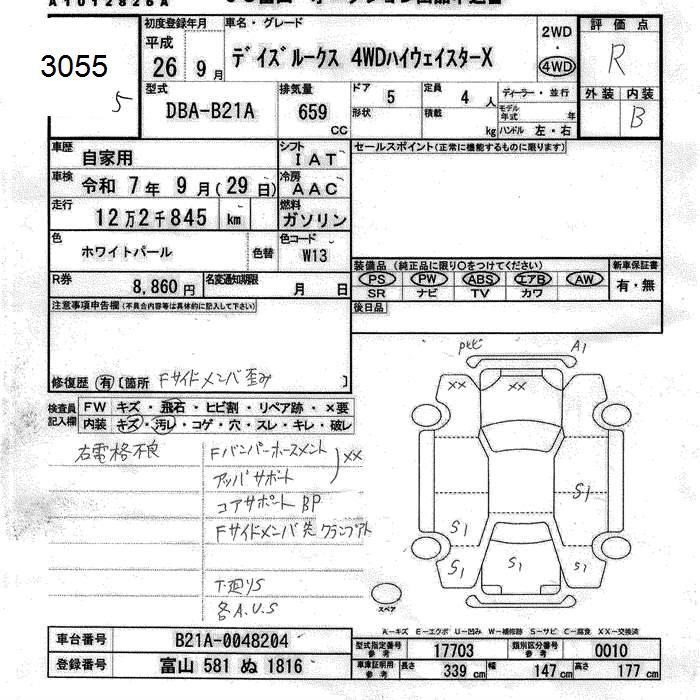 A1012826A
3055
5
初度登録年月
平成
26 9 月
車名・グレード
デイズルークス 4WDハイウェイスターX
2WD
・
4WD
評価点
R
外装 内装
B
型式
DBA-B21A
排気量
659
CC
ドア 5
形状
定員 4 人
積載 kg
ディーラー・並行
モデル年式 年
ハンドル 左・右
車歴
自家用
シフト
IAT
車検
令和 7 年 9 月 ( 29 日)
冷房
AAC
走行
12 万 2 千 845 km
燃料
ガソリン
色
ホワイトパール
色替
色コード
W13
R券
8,860 円
名変通知期限
月 日
セールスポイント(正常に機能するものに限ります)
装備品 (純正品に限り○をつけてください)
PS PW ABS エアB AW
SR ナビ TV カワ
新車保証書
有・無
後日品
注意事項申告欄(不具合内容等は具体的に記入して下さい)
修復歴 有 [箇所 Fサイドメンバ歪み ]
検査員記入欄
FW キズ・飛石・ヒビ割・リペア跡・×要
内装 キズ・汚レ・コゲ・穴・スレ・キレ・破レ
右電格不良
Fバンパーホースメント
アッパサポート
××
コアサポート BP
Fサイドメンバ先クランプアト
下廻りS
各A.U.S
A1
×× ××
S1
S1
S1 S1 S1
スペア
A-キズ E-エクボ U-凹み W-補修跡 S-サビ C-腐食 XX-交換済
車台番号 B21A-0048204
登録番号 富山 581 ぬ 1816
型式指定番号 参考 17703 類別区分番号 参考 0010
車庫証明用 参考 長さ 339 cm 幅 147 cm 高さ 177 cm